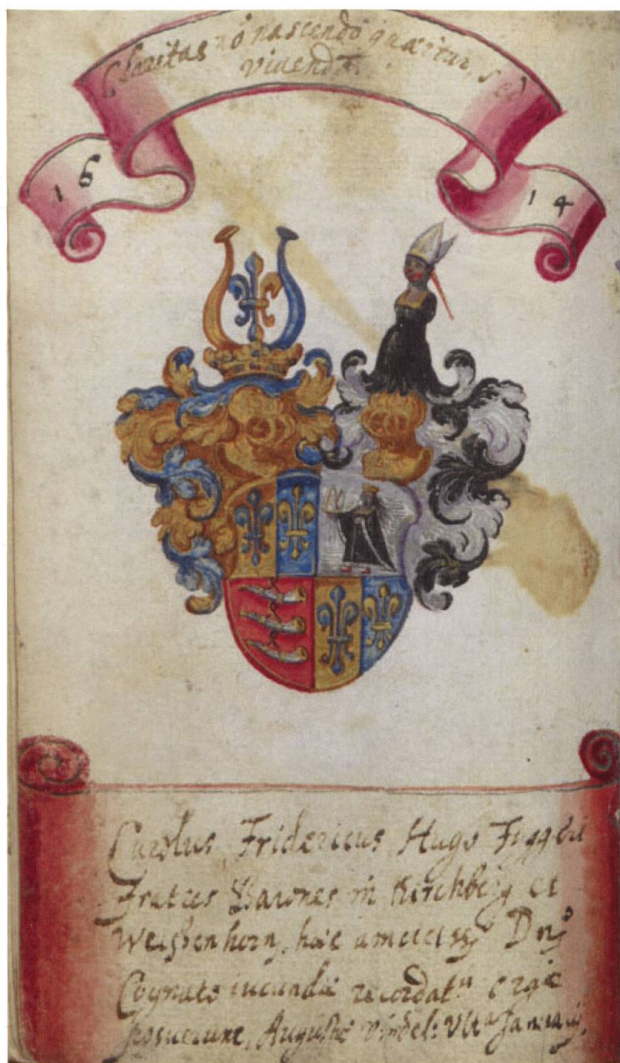 Claritas nō nascendo quæritur, sed
vivendo.
16 14
Carolus, Fridericus, Hugo Fuggeri
Fratres Barones in Kirchberg et
Weissenhorn, hæc amicissº Dnō
Cognato iucundæ recordatⁿ ergò
posuerunt, Augustæ Vindel: Ultª Januarij.